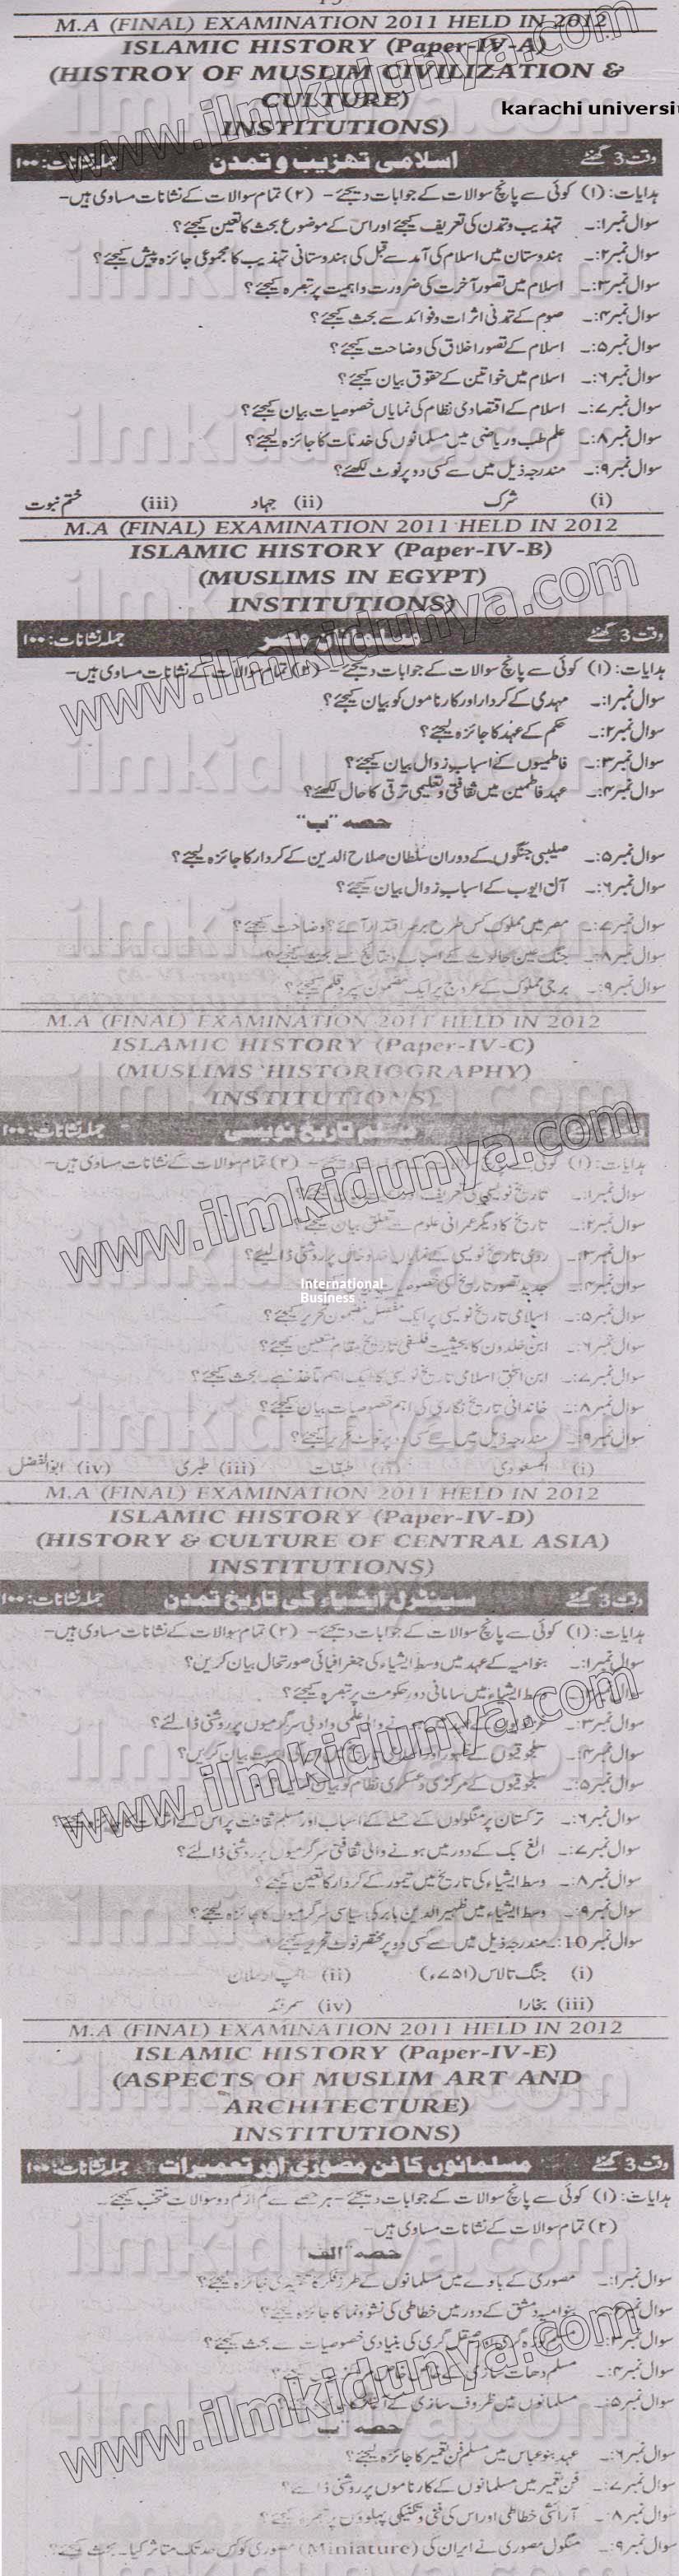 M.A (FINAL) EXAMINATION 2011 HELD IN 2012
ISLAMIC HISTORY (Paper-IV-A)
(HISTROY OF MUSLIM CIVILIZATION &
CULTURE)
karachi universi
INSTITUTIONS)
وقت 3 گھنٹے اسلامی تہزیب و تمدن جملہ نشانات: ۱۰۰
ہدایات: (۱) کوئی سے پانچ سوالات کے جوابات دیجئے۔ (۲) تمام سوالات کے نشانات مساوی ہیں۔
سوال نمبر۱:۔ تہذیب و تمدن کی تعریف کیجئے اور اس کے موضوع بحث کا تعین کیجئے؟
سوال نمبر۲:۔ ہندوستان میں اسلام کی آمد سے قبل کی ہندوستانی تہذیب کا مجموعی جائزہ پیش کیجئے؟
سوال نمبر۳:۔ اسلام میں تصور آخرت کی ضرورت و اہمیت پر تبصرہ کیجئے؟
سوال نمبر۴:۔ صوم کے تمدنی اثرات و فوائد سے بحث کیجئے؟
سوال نمبر۵:۔ اسلام کے تصور اخلاق کی وضاحت کیجئے؟
سوال نمبر۶:۔ اسلام میں خواتین کے حقوق بیان کیجئے؟
سوال نمبر۷:۔ اسلام کے اقتصادی نظام کی نمایاں خصوصیات بیان کیجئے؟
سوال نمبر۸:۔ علم طب و ریاضی میں مسلمانوں کی خدمات کا جائزہ لیجئے؟
سوال نمبر۹:۔ مندرجہ ذیل میں سے کسی دو پر نوٹ لکھئے؟
(i) شرک (ii) جہاد (iii) ختم نبوت
M.A (FINAL) EXAMINATION 2011 HELD IN 2012
ISLAMIC HISTORY (Paper-IV-B)
(MUSLIMS IN EGYPT)
INSTITUTIONS)
وقت 3 گھنٹے مسلمانان مصر جملہ نشانات: ۱۰۰
ہدایات: (۱) کوئی سے پانچ سوالات کے جوابات دیجئے۔ (۲) تمام سوالات کے نشانات مساوی ہیں۔
سوال نمبر۱:۔ مہدی کے کردار اور کارناموں کو بیان کیجئے؟
سوال نمبر۲:۔ حکم کے عہد کا جائزہ لیجئے؟
سوال نمبر۳:۔ فاطمیوں کے اسباب زوال بیان کیجئے؟
سوال نمبر۴:۔ عہد فاطمین میں ثقافتی و تعلیمی ترقی کا حال لکھئے؟
حصہ "ب"
سوال نمبر۵:۔ صلیبی جنگوں کے دوران سُلطان صلاح الدین کے کردار کا جائزہ لیجئے؟
سوال نمبر۶:۔ آل ایوب کے اسباب زوال بیان کیجئے؟
سوال نمبر۷:۔ مصر میں مملوک کس طرح برسر اقتدار آئے؟ وضاحت کیجئے؟
سوال نمبر۸:۔ جنگ عین جالوت کے اسباب و نتائج سے بحث کیجئے؟
سوال نمبر۹:۔ برجی مملوک کے عروج پر ایک مضمون سپرد قلم کیجئے؟
M.A (FINAL) EXAMINATION 2011 HELD IN 2012
ISLAMIC HISTORY (Paper-IV-C)
(MUSLIMS HISTORIOGRAPHY)
INSTITUTIONS)
مسلم تاریخ نویسی جملہ نشانات: ۱۰۰
ہدایات: (۱) کوئی سے پانچ سوالات کے جوابات دیجئے۔ (۲) تمام سوالات کے نشانات مساوی ہیں۔
سوال نمبر۱:۔ تاریخ نویسی کی تعریف کیجئے؟
سوال نمبر۲:۔ تاریخ کا دیگر عمرانی علوم سے تعلق بیان کیجئے؟
سوال نمبر۳:۔ رومی تاریخ نویسی کے نمایاں خدوخال پر روشنی ڈالیئے؟
سوال نمبر۴:۔ جدید تصور تاریخ کی خصوصیات
International
Business
سوال نمبر۵:۔ اسلامی تاریخ نویسی پر ایک مفصل مضمون تحریر کیجئے؟
سوال نمبر۶:۔ ابن خلدون کا بحیثیت فلسفی تاریخ مقام متعین کیجئے؟
سوال نمبر۷:۔ ابن اسحٰق اسلامی تاریخ نویسی کا ایک اہم مآخذ ہے۔ بحث کیجئے؟
سوال نمبر۸:۔ خاندانی تاریخ نگاری کی اہم خصوصیات بیان کیجئے؟
سوال نمبر۹:۔ مندرجہ ذیل میں سے کسی دو پر نوٹ تحریر کیجئے؟
(i) المسعودی (ii) طبقات (iii) طبری (iv) ابوالفضل
M.A (FINAL) EXAMINATION 2011 HELD IN 2012
ISLAMIC HISTORY (Paper-IV-D)
(HISTORY & CULTURE OF CENTRAL ASIA)
INSTITUTIONS)
وقت 3 گھنٹے سینٹرل ایشیاء کی تاریخ تمدن جملہ نشانات: ۱۰۰
ہدایات: (۱) کوئی سے پانچ سوالات کے جوابات دیجئے۔ (۲) تمام سوالات کے نشانات مساوی ہیں۔
سوال نمبر۱:۔ بنو امیہ کے عہد میں وسط ایشیاء کی جغرافیائی صورتحال بیان کریں؟
وسط ایشیاء میں سامانی دور حکومت پر تبصرہ کیجئے؟
سوال نمبر۳:۔ ہونے والی علمی و ادبی سرگرمیوں پر روشنی ڈالئے؟
سوال نمبر۴:۔ سلجوقیوں کے ظہور اور اہمیت بیان کریں؟
سوال نمبر۵:۔ سلجوقیوں کے مرکزی و عسکری نظام کو بیان کیجئے؟
سوال نمبر۶:۔ ترکستان پر منگولوں کے حملے کے اسباب اور مسلم ثقافت پر اس کے اثرات کا جائزہ لیجئے؟
سوال نمبر۷:۔ الغ بیگ کے دور میں ہونے والی ثقافتی سرگرمیوں پر روشنی ڈالئے؟
سوال نمبر۸:۔ وسط ایشیاء کی تاریخ میں تیمور کے کردار کا تعین کیجئے؟
سوال نمبر۹:۔ وسط ایشیاء میں ظہیر الدین بابر کی سیاسی سرگرمیوں کا جائزہ لیجئے؟
سوال نمبر 10:۔ مندرجہ ذیل میں سے کسی دو پر مختصر نوٹ تحریر کیجئے؟
(i) جنگ تالاس (۷۵۱ء) (ii) الپ ارسلان
(iii) بخارا (iv) سمرقند
M.A (FINAL) EXAMINATION 2011 HELD IN 2012
ISLAMIC HISTORY (Paper-IV-E)
(ASPECTS OF MUSLIM ART AND
ARCHITECTURE)
INSTITUTIONS)
وقت 3 گھنٹے مسلمانوں کا فن مصوری اور تعمیرات جملہ نشانات: ۱۰۰
ہدایات: (۱) کوئی سے پانچ سوالات کے جوابات دیجئے۔ ہر حصے سے کم از کم دو سوالات منتخب کیجئے۔
(۲) تمام سوالات کے نشانات مساوی ہیں۔
حصہ "الف"
سوال نمبر۱:۔ مصوری کے بارے میں مسلمانوں کے طرز فکر کا تنقیدی جائزہ لیجئے؟
بنو امیہ دمشق کے دور میں خطاطی کی نشوونما کا جائزہ لیجئے؟
صیقل گری کی بنیادی خصوصیات سے بحث کیجئے؟
سوال نمبر۴:۔ مسلم دھات سازی کے
سوال نمبر۵:۔ مسلمانوں میں ظروف سازی کے
حصہ "ب"
سوال نمبر۶:۔ عہد بنو عباس میں مسلم فن تعمیر کا جائزہ لیجئے؟
سوال نمبر۷:۔ فن تعمیر میں مسلمانوں کے کارناموں پر روشنی ڈالئے؟
سوال نمبر۸:۔ آرائشی خطاطی اور اس کی فنی و تکنیکی پہلوؤں پر تبصرہ کیجئے؟
سوال نمبر۹:۔ منگول مصوری نے ایران کی (Miniature) مصوری کو کس حد تک متاثر کیا۔ بحث کیجئے؟
www.ilmkidunya.com
www.ilmkidunya.com
www.ilmkidunya.com
www.ilmkidunya.com
www.ilmkidunya.com